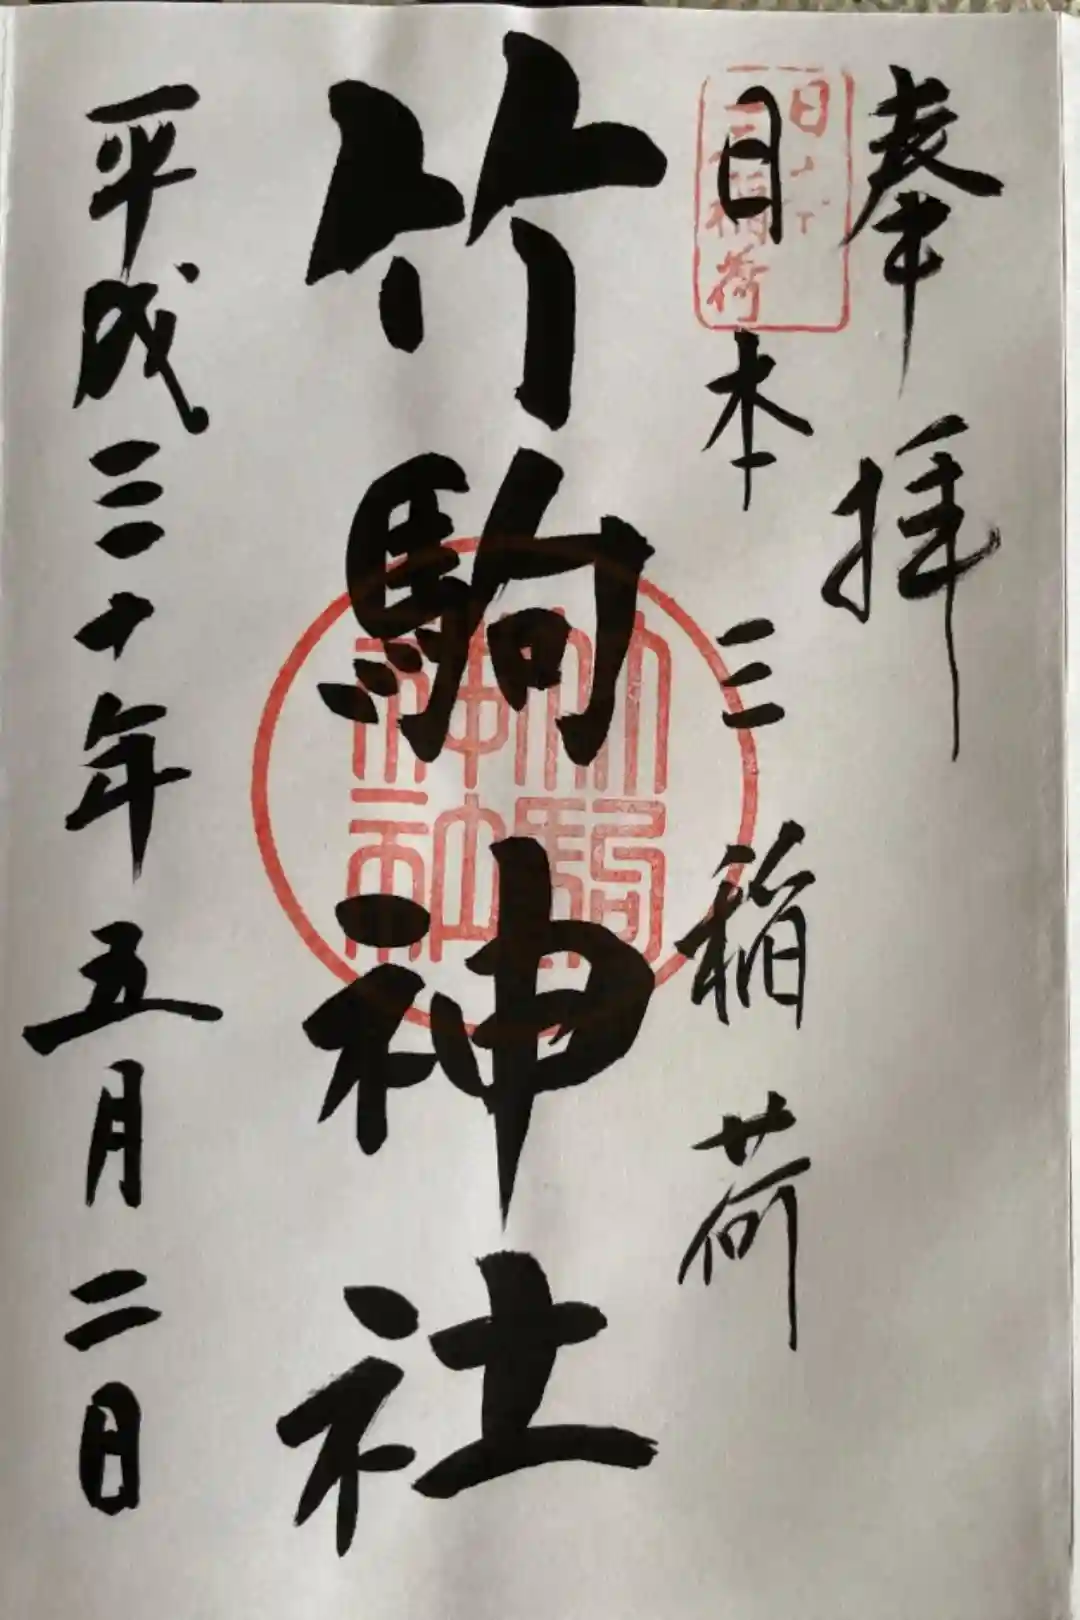 奉拝
日本三稲荷
日本
三稲荷
竹駒神社
竹駒
神社
平成三十年五月二日